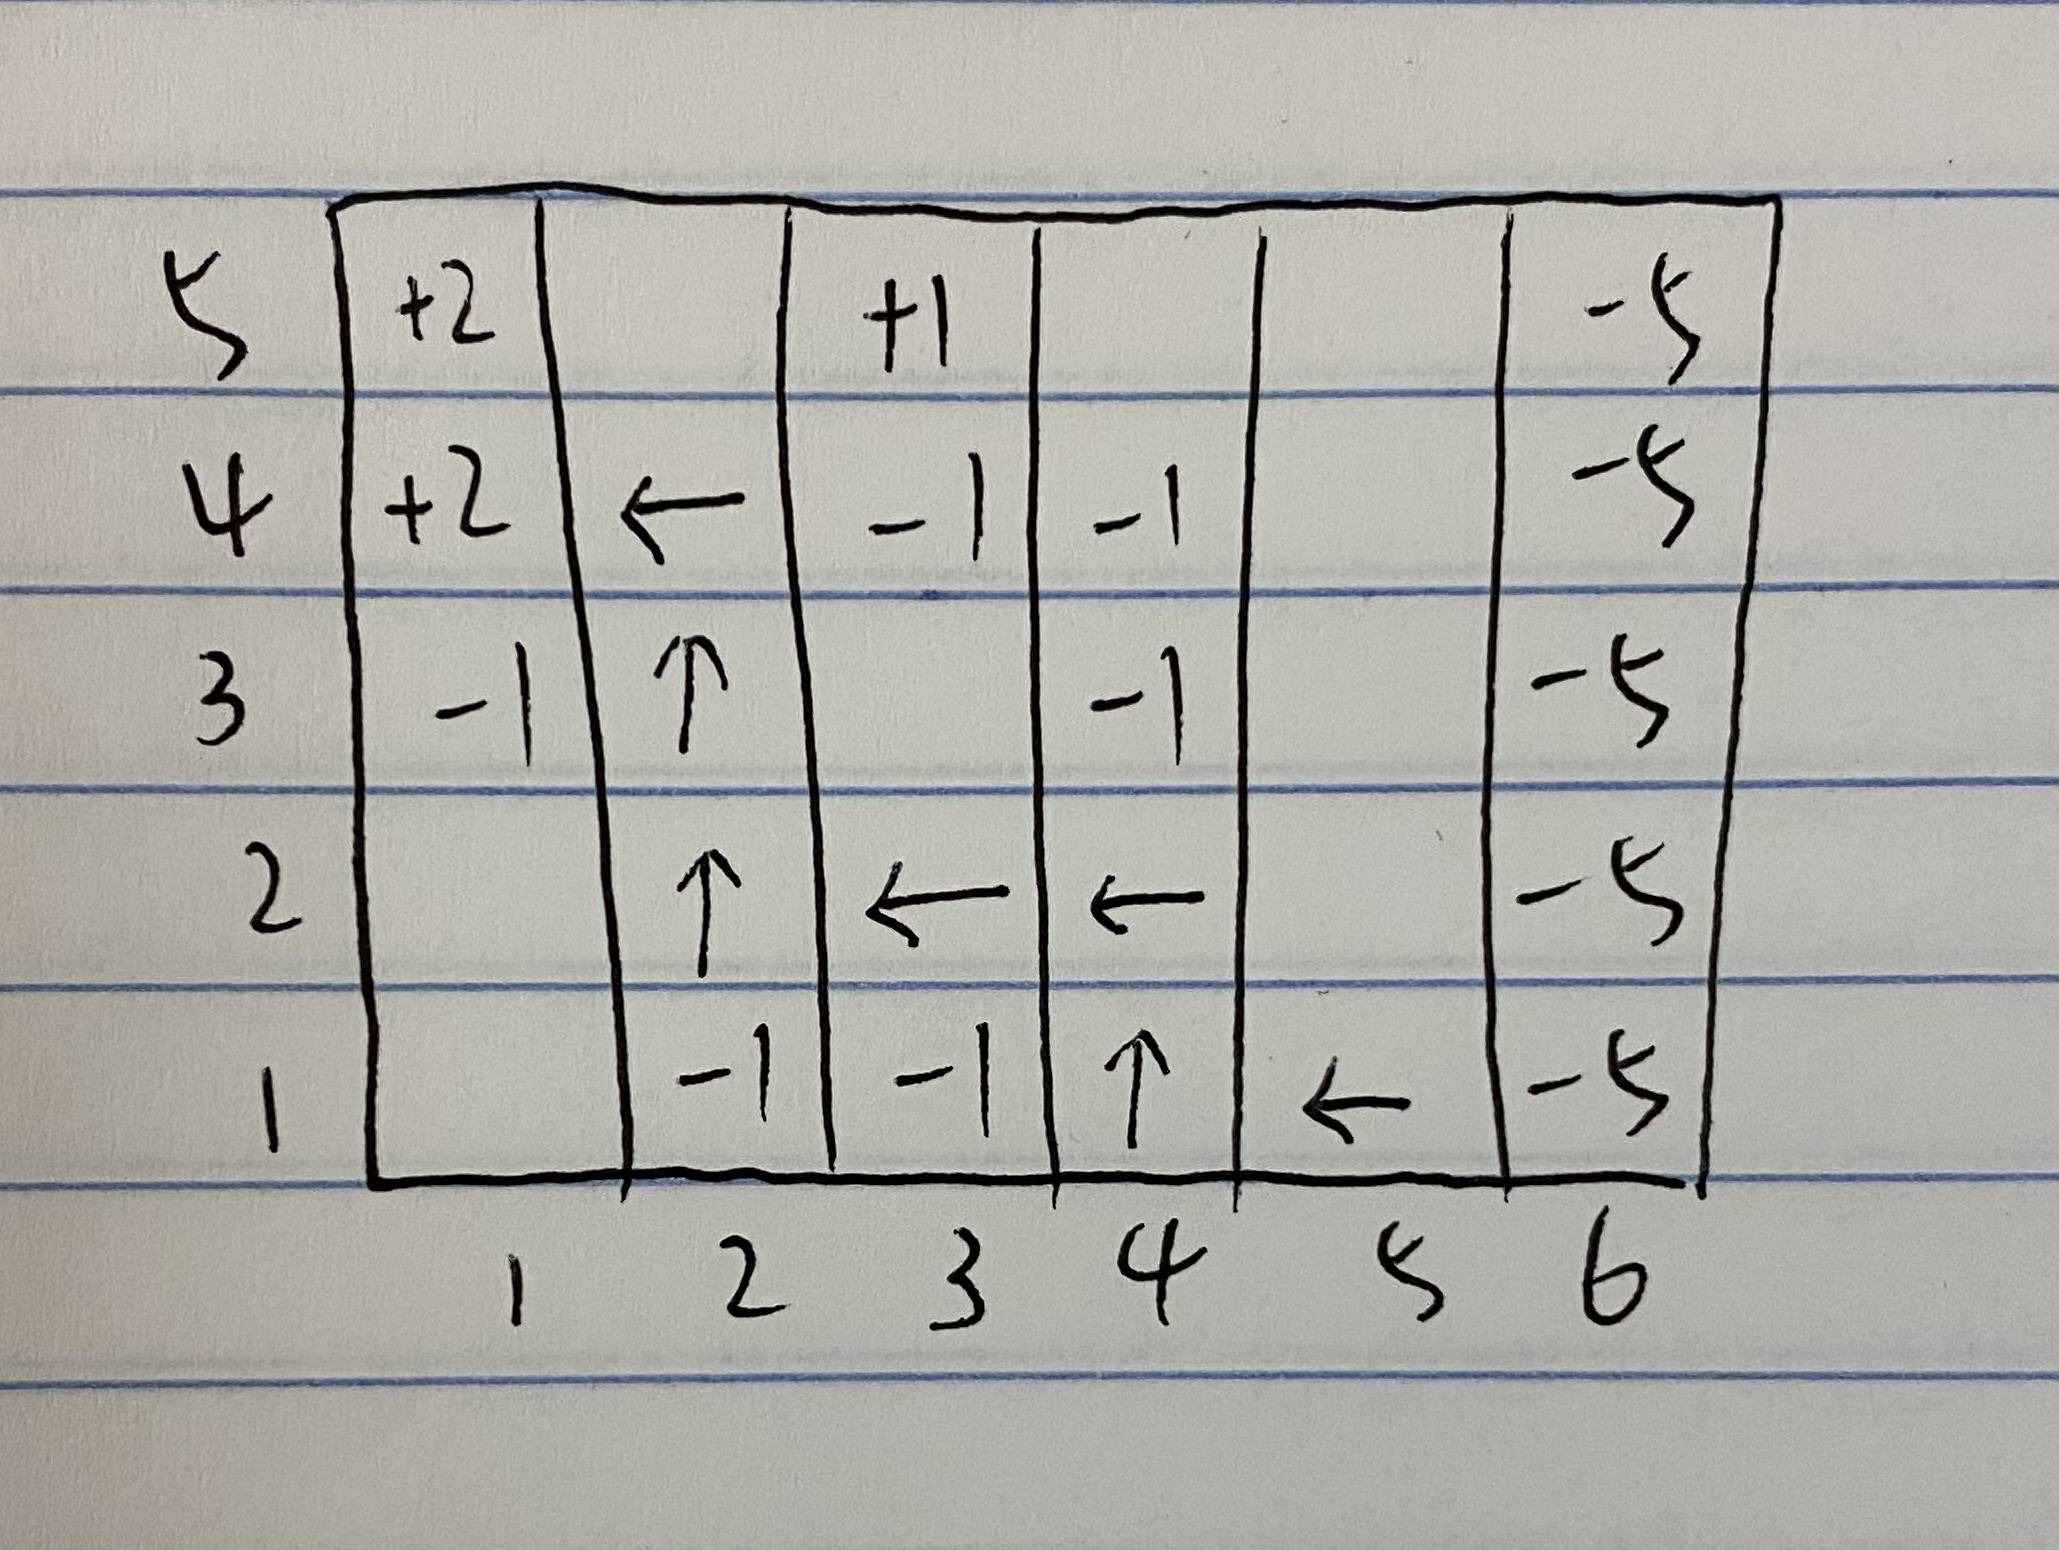 5 +2 +1 -5
4 +2 ← -1 -1 -5
3 -1 ↑ -1 -5
2 ↑ ← ← -5
1 -1 -1 ↑ ← -5
1 2 3 4 5 6